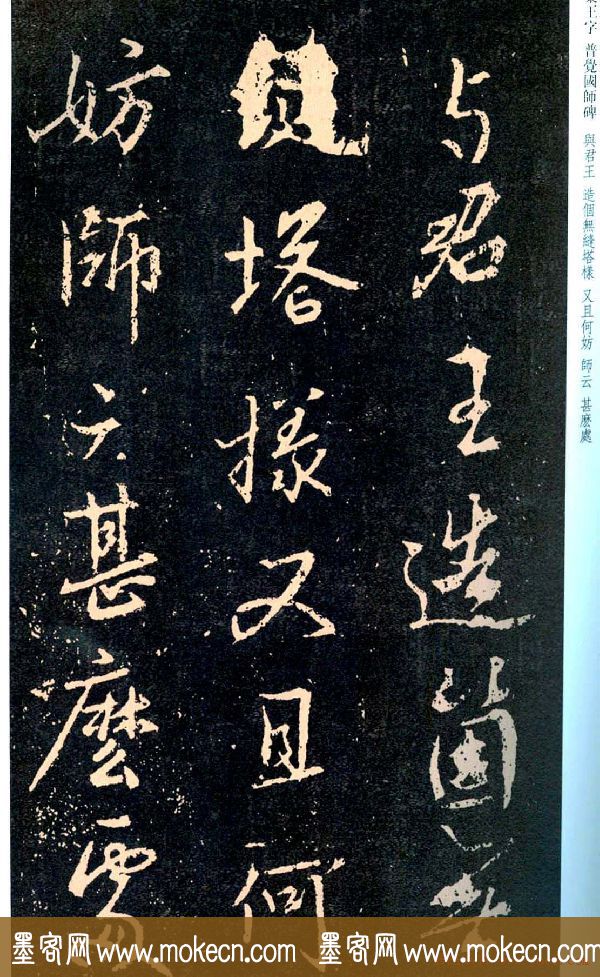 王字 普覺國師碑 與君王 造個無縫塔樣 又且何妨 師云 甚麼處
与君王造箇
塔樣又且何
妨師云甚麼處
墨客网 www.mokecn.com 墨客网 www.mokecn.com